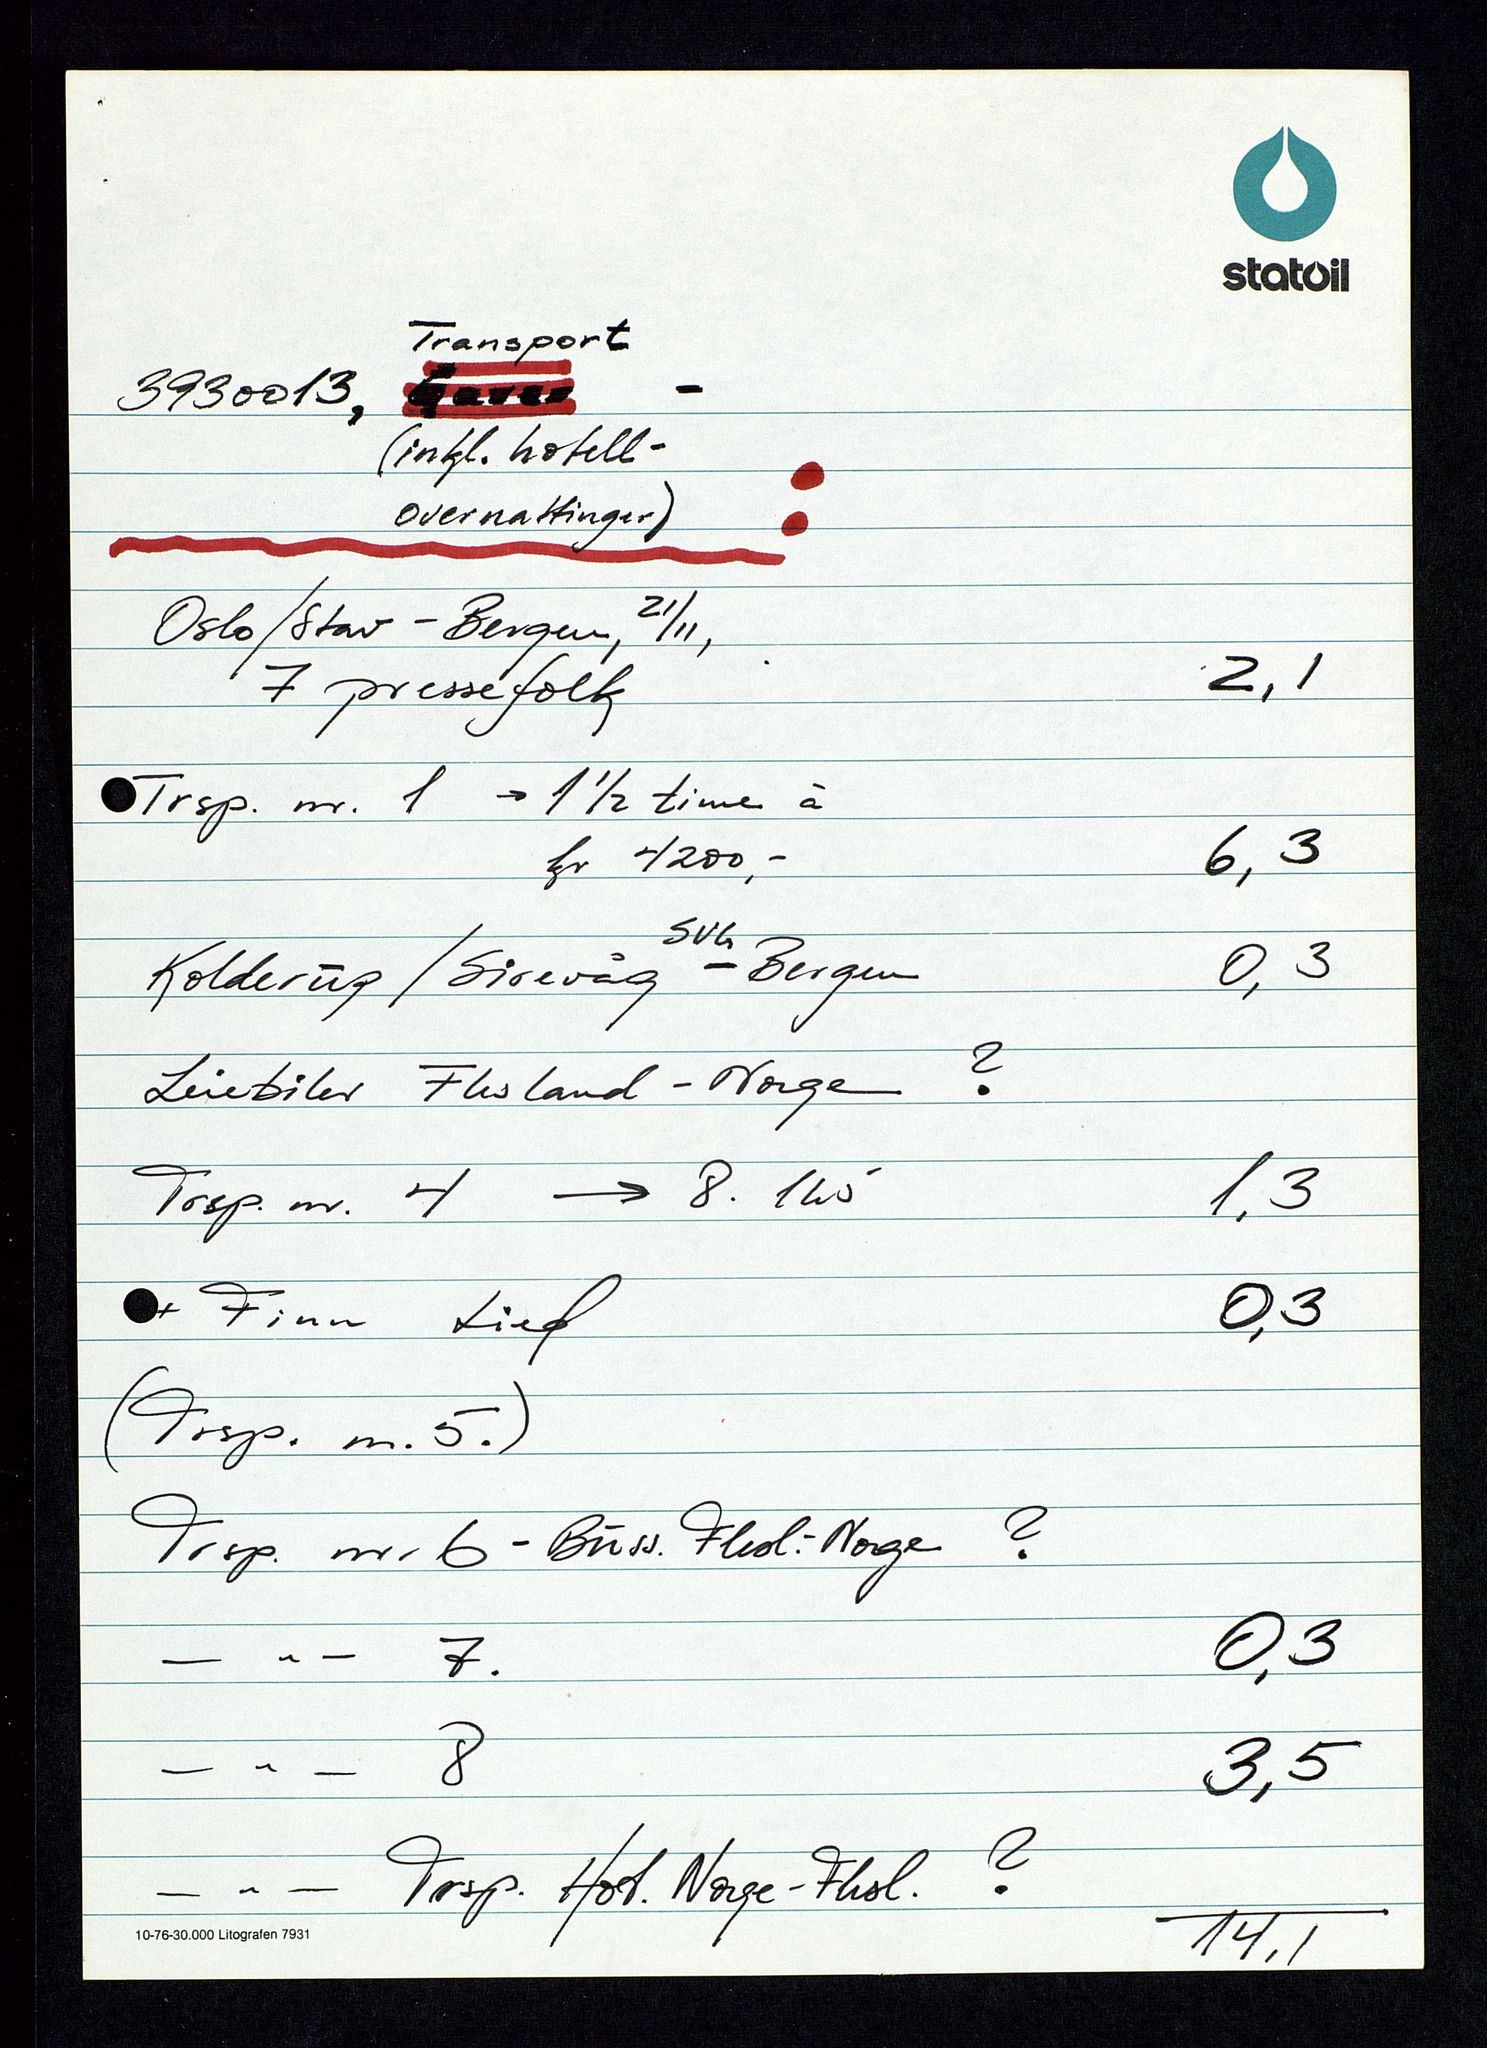 statoil
Transport
3930013, Gaver -
(inkl. hotell-
overnattinger)
Oslo/Stav - Bergen, 21/11,
7 pressefolk 2,1
Trsp. nr. 1 → 1 1/2 time à
kr 4200,- 6,3
SVG
Kolderup / Sirevåg - Bergen 0,3
Leiebiler Flesland - Norge ?
Trsp. nr. 4 → 8. 1,3
+ Finn Lied 0,3
(Trsp. nr. 5.)
Trsp. nr. 6 - Buss. Flesl.- Norge ?
— " — 7. 0,3
— " — 8 3,5
— " — Trsp. Hot. Norge - Flesl. ?
14,1
10-76-30.000 Litografen 7931